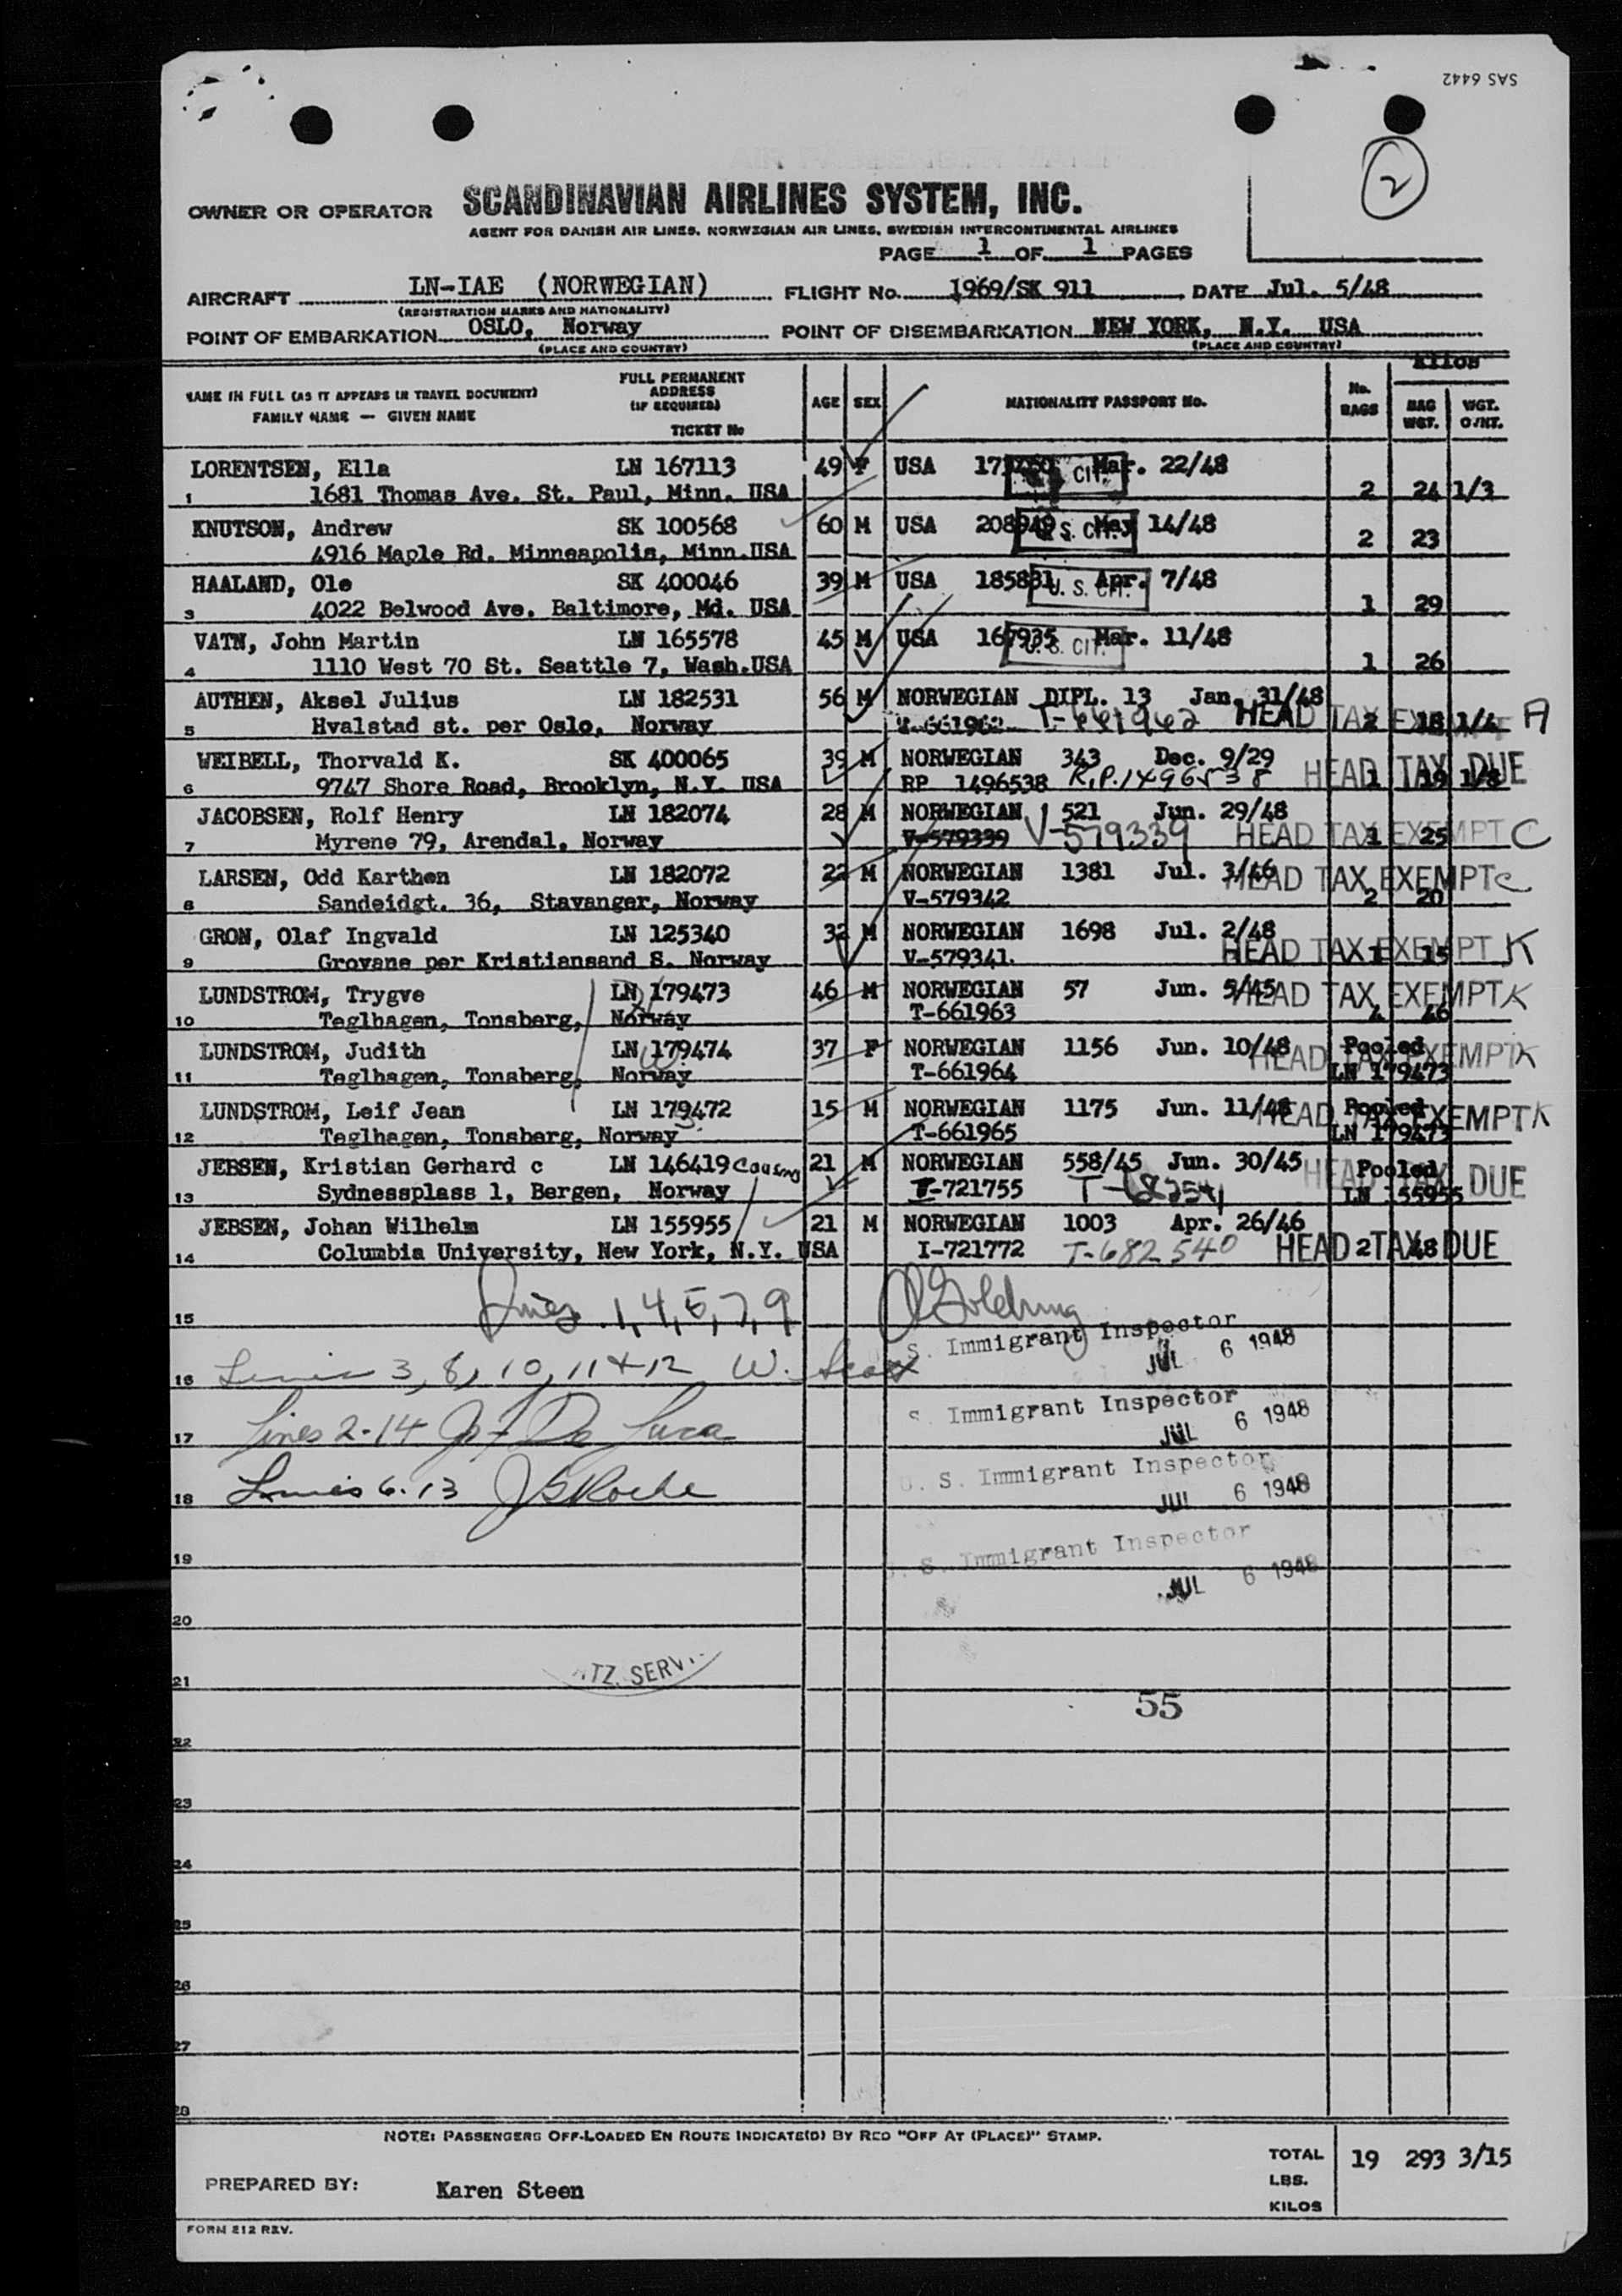 SAS 6442
2
OWNER OR OPERATOR SCANDINAVIAN AIRLINES SYSTEM, INC.
AGENT FOR DANISH AIR LINES, NORWEGIAN AIR LINES, SWEDISH INTERCONTINENTAL AIRLINES
PAGE 1 OF 1 PAGES
AIRCRAFT LN-IAE (NORWEGIAN) FLIGHT No. 1969/SK 911 DATE Jul. 5/48
(REGISTRATION MARKS AND NATIONALITY)
POINT OF EMBARKATION OSLO, Norway POINT OF DISEMBARKATION NEW YORK, N.Y. USA
(PLACE AND COUNTRY) (PLACE AND COUNTRY)
Kilos
NAME IN FULL (AS IT APPEARS IN TRAVEL DOCUMENT) FAMILY NAME — GIVEN NAME FULL PERMANENT ADDRESS (IF REQUIRED) TICKET No AGE SEX NATIONALITY PASSPORT No. No. BAGS BAG WGT. WGT. O/HT.
LORENTSEN, Ella LN 167113 49 F USA Mar. 22/48
1 1681 Thomas Ave. St. Paul, Minn. USA 2 24 1/3
KNUTSON, Andrew SK 100568 60 M USA 208949 U. S. CIT. May 14/48
4916 Maple Rd. Minneapolis, Minn.USA 2 23
HAALAND, Ole SK 400046 39 M USA 185831 U. S. CIT. Apr. 7/48
3 4022 Belwood Ave. Baltimore, Md. USA 1 29
VATN, John Martin LN 165578 45 M USA 167935 U. S. CIT. Mar. 11/48
4 1110 West 70 St. Seattle 7, Wash.USA 1 26
AUTHEN, Aksel Julius LN 182531 56 M NORWEGIAN DIPL. 13 Jan. 31/48
5 Hvalstad st. per Oslo, Norway T-661962 HEAD TAX EXEMPT A 2 18 1/4
WEIBELL, Thorvald K. SK 400065 39 M NORWEGIAN 343 Dec. 9/29
6 9747 Shore Road, Brooklyn, N.Y. USA RP 1496538 R.P.1496538 HEAD TAX DUE 1 19 1/8
JACOBSEN, Rolf Henry LN 182074 28 M NORWEGIAN 521 Jun. 29/48
7 Myrene 79, Arendal, Norway V-579339 V-579339 HEAD TAX EXEMPT C 1 25
LARSEN, Odd Karthon LN 182072 22 M NORWEGIAN 1381 Jul. 3/46 HEAD TAX EXEMPT C
8 Sandeidgt. 36, Stavanger, Norway V-579342 2 20
GRON, Olaf Ingvald LN 125340 32 M NORWEGIAN 1698 Jul. 2/48
9 Grovane per Kristiansand S. Norway V-579341. HEAD TAX EXEMPT K 1 15
LUNDSTROM, Trygve LN 179473 46 M NORWEGIAN 57 Jun. 5/45 HEAD TAX EXEMPT K
10 Teglhagen, Tonsberg, Norway T-661963 4 46
LUNDSTROM, Judith LN 179474 37 F NORWEGIAN 1156 Jun. 10/48 Pooled HEAD TAX EXEMPT K
11 Teglhagen, Tonsberg, Norway T-661964 LN 179473
LUNDSTROM, Leif Jean LN 179472 15 M NORWEGIAN 1175 Jun. 11/48 Pooled HEAD TAX EXEMPT K
12 Teglhagen, Tonsberg, Norway T-661965 LN 179473
JEBSEN, Kristian Gerhard c LN 146419 Cousins 21 M NORWEGIAN 558/45 Jun. 30/45 Pooled HEAD TAX DUE
13 Sydnessplass 1, Bergen, Norway -721755 LN 155955
JEBSEN, Johan Wilhelm LN 155955 21 M NORWEGIAN 1003 Apr. 26/46
14 Columbia University, New York, N.Y. USA I-721772 T-682540 HEAD TAX DUE 2 48
15 Lines 1, 4, 5, 7, 9
S. Immigrant Inspector
JUL 6 1948
16 Lines 3, 8, 10, 11 & 12 W. Scott
S. Immigrant Inspector
JUL 6 1948
17 Lines 2-14 De Luca
U. S. Immigrant Inspector
JUL 6 1948
18 Lines 6-13 JS Roche
S. Immigrant Inspector
JUL 6 1948
19
20
21
SERV.
55
22
23
24
25
26
27
28
NOTE: PASSENGERS OFF-LOADED EN ROUTE INDICATE(D) BY RED "OFF AT (PLACE)" STAMP.
TOTAL 19 293 3/15
LBS.
KILOS
PREPARED BY: Karen Steen
FORM 212 REV.